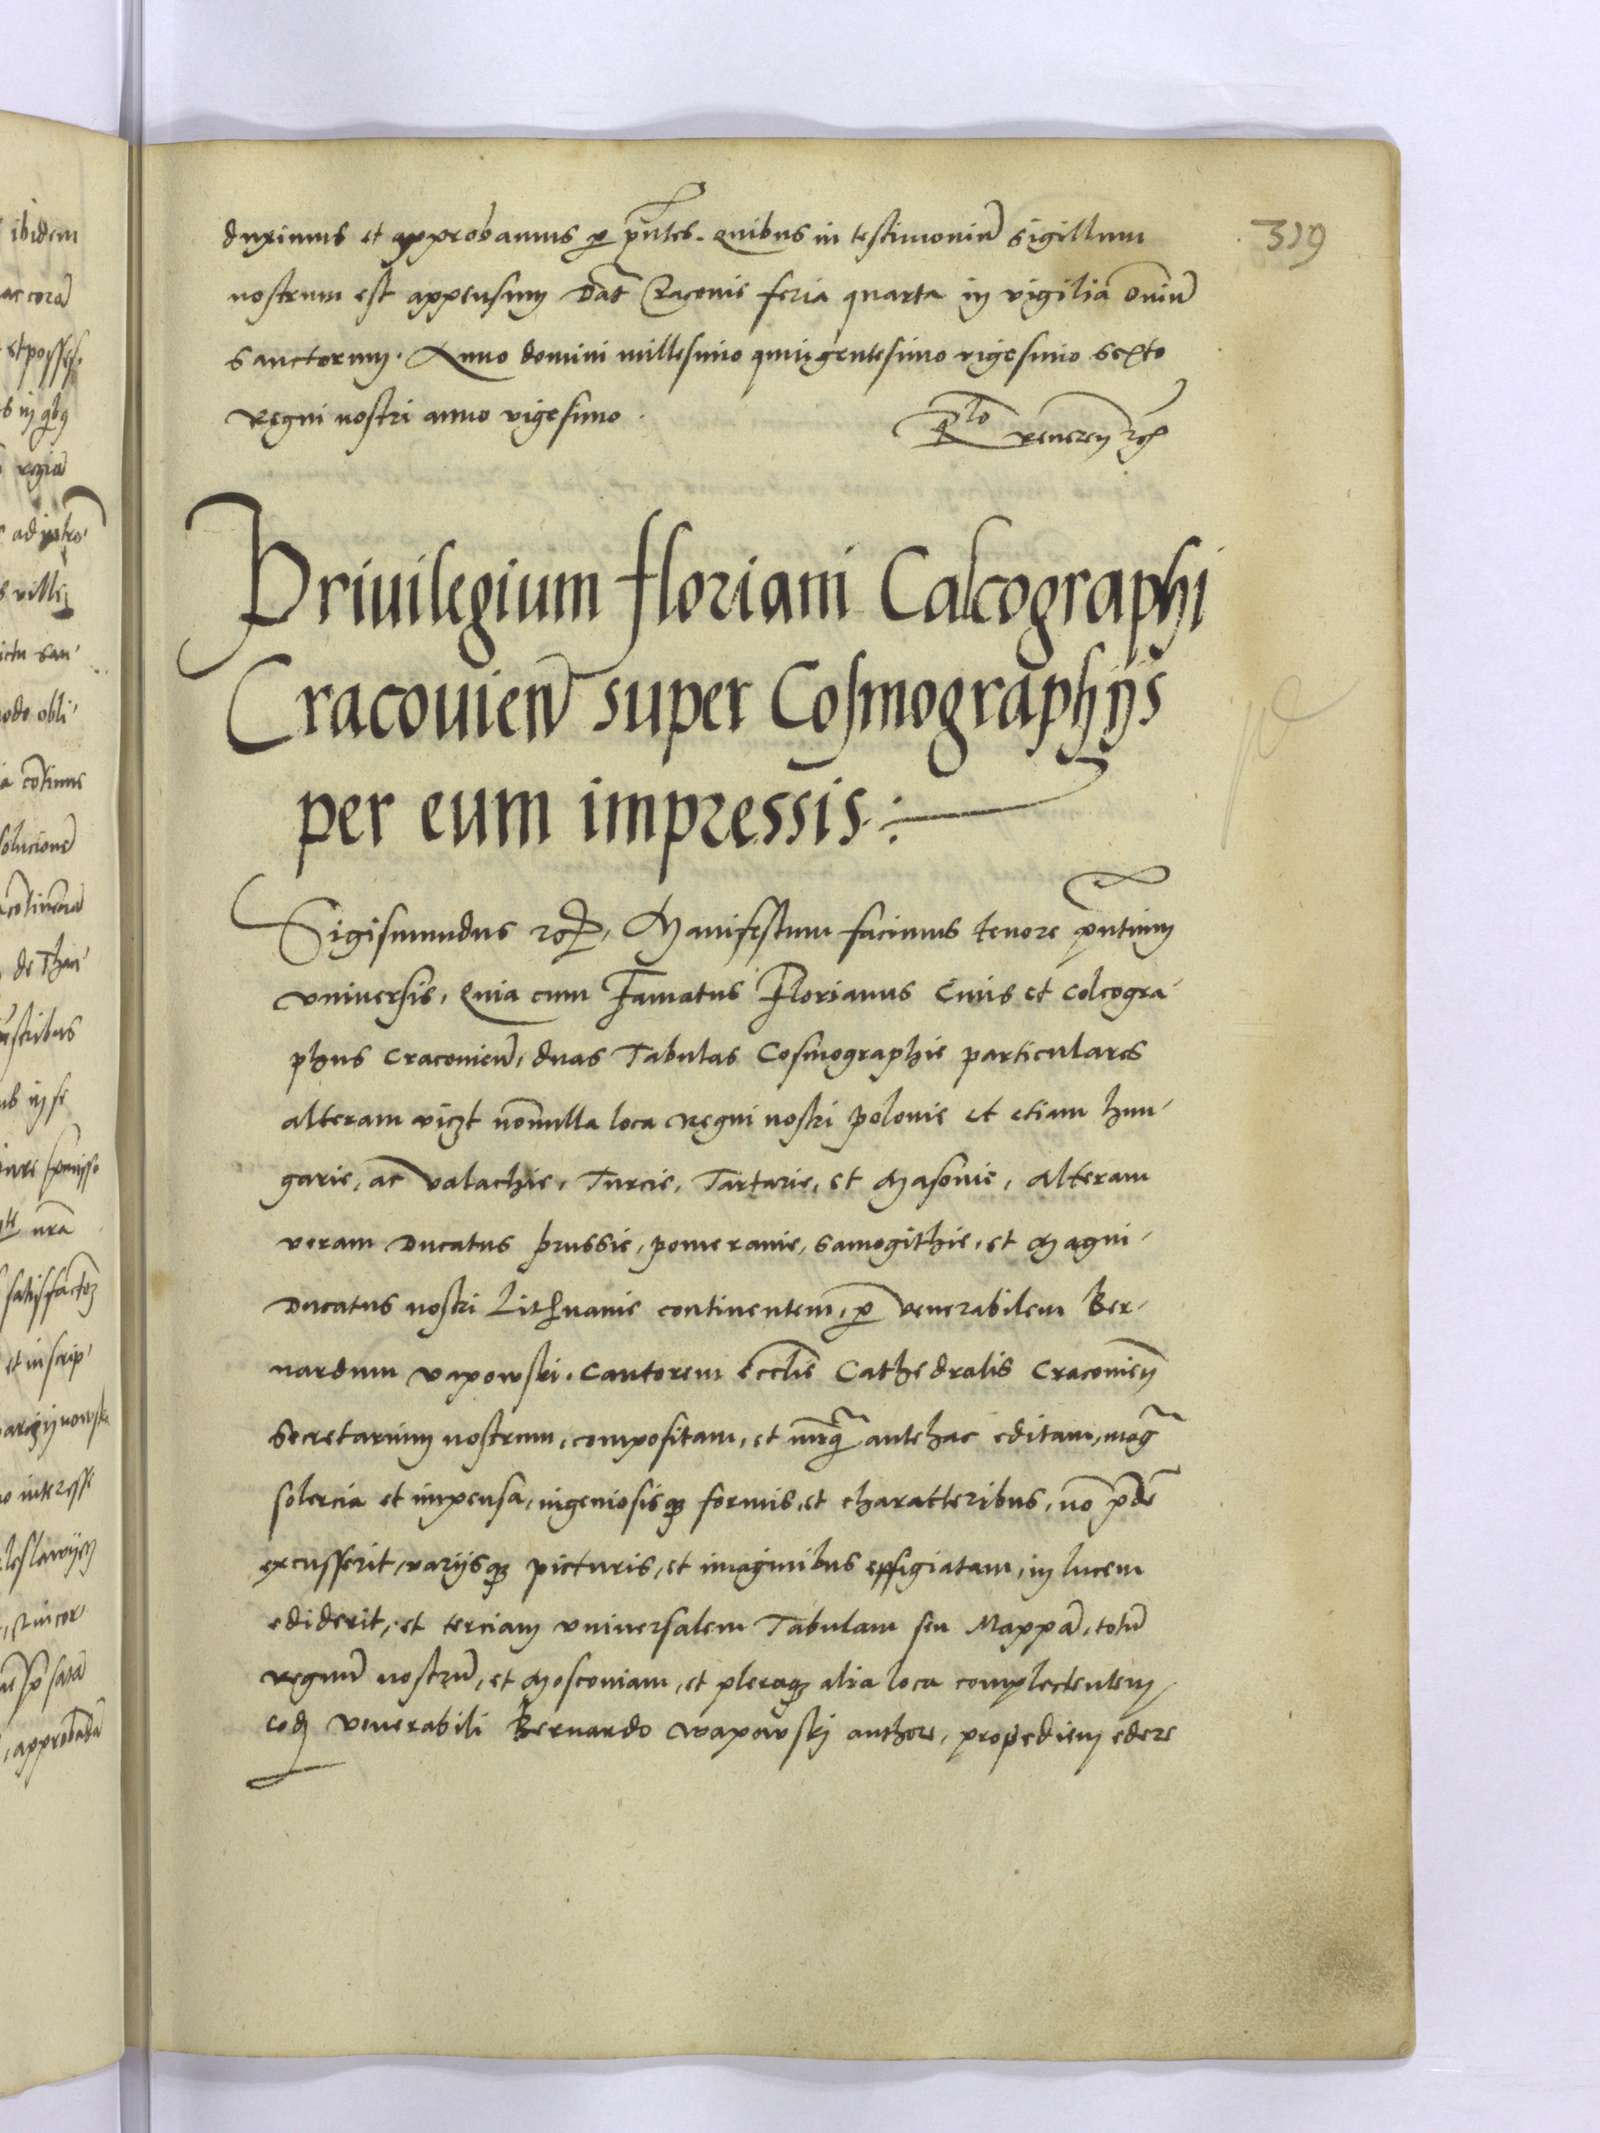 319
duximus et approbamus p pntes. quibus in testimoniũ sigillum
nostrum est appensum Dat Cracovie feria quarta in vigilia omniũ
sanctorum. Anno domini millesimo quingentesimo vigesimo sexto
Regni nostri anno vigesimo.
Rlo
Privilegium floriani Calcographi
Cracovieñ super Cosmographijs
per eum impressis
Sigismundus Manifestum facimus tenore pntium
universis, Quia cum Famatus Florianus Civis et Colcogra-
phus Cracovieñ, duas Tabulas Cosmographie particulares
alteram vizt nonnulla loca Regni nostri Polonie et etiam hun-
garie, ac Valachie, Turcie, Tartarie, et Masovie, Alteram
veram Ducatus prussie, pomeranie, samogithie, et Magni
Ducatus nostri Lithuanie continentem, p venerabilem Ber-
nardum vapowski. Cantorem Ecclie Cathedralis Cracovieñ
Secretarium nostrum, compositam, et nunq antehac editam, mag
solercia et impensa, ingeniosisq formis, et charatteribus,
excusserit, varijsq picturis, et imaginibus effigiatam, in lucem
ediderit, et terciam universalem Tabulam seu Mappã, totũ
regnũ nostrũ, et Moscoviam, et pleraq alia loca complectentem,
eod venerabili Bernardo Wapowski authore, propediem edere